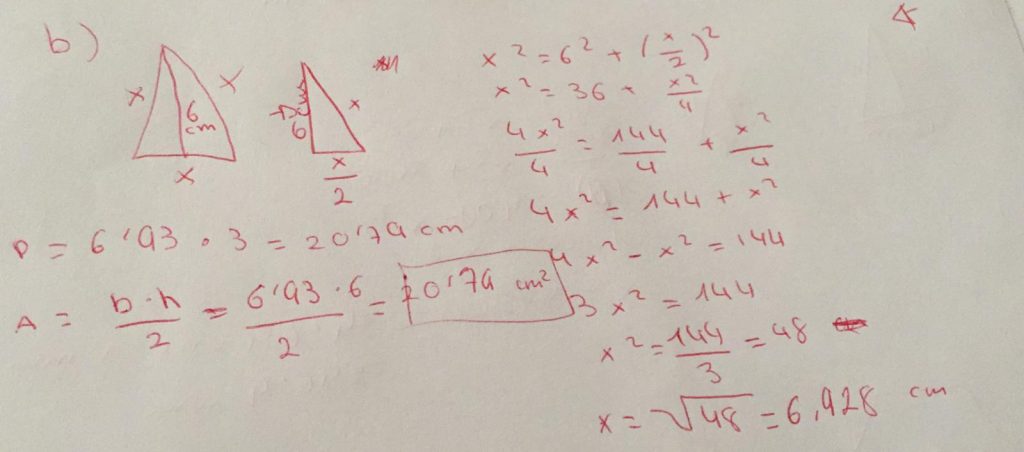 b)
x
x
6
cm
x
x
6
x/2
x² = 6² + (x/2)²
x² = 36 + x²/4
4x²/4 = 144/4 + x²/4
4x² = 144 + x²
4x² - x² = 144
3x² = 144
x² = 144/3 = 48
x = √48 = 6,928 cm
P = 6'93 · 3 = 20'79 cm
A = b·h/2 = 6'93·6/2 = 20'79 cm²